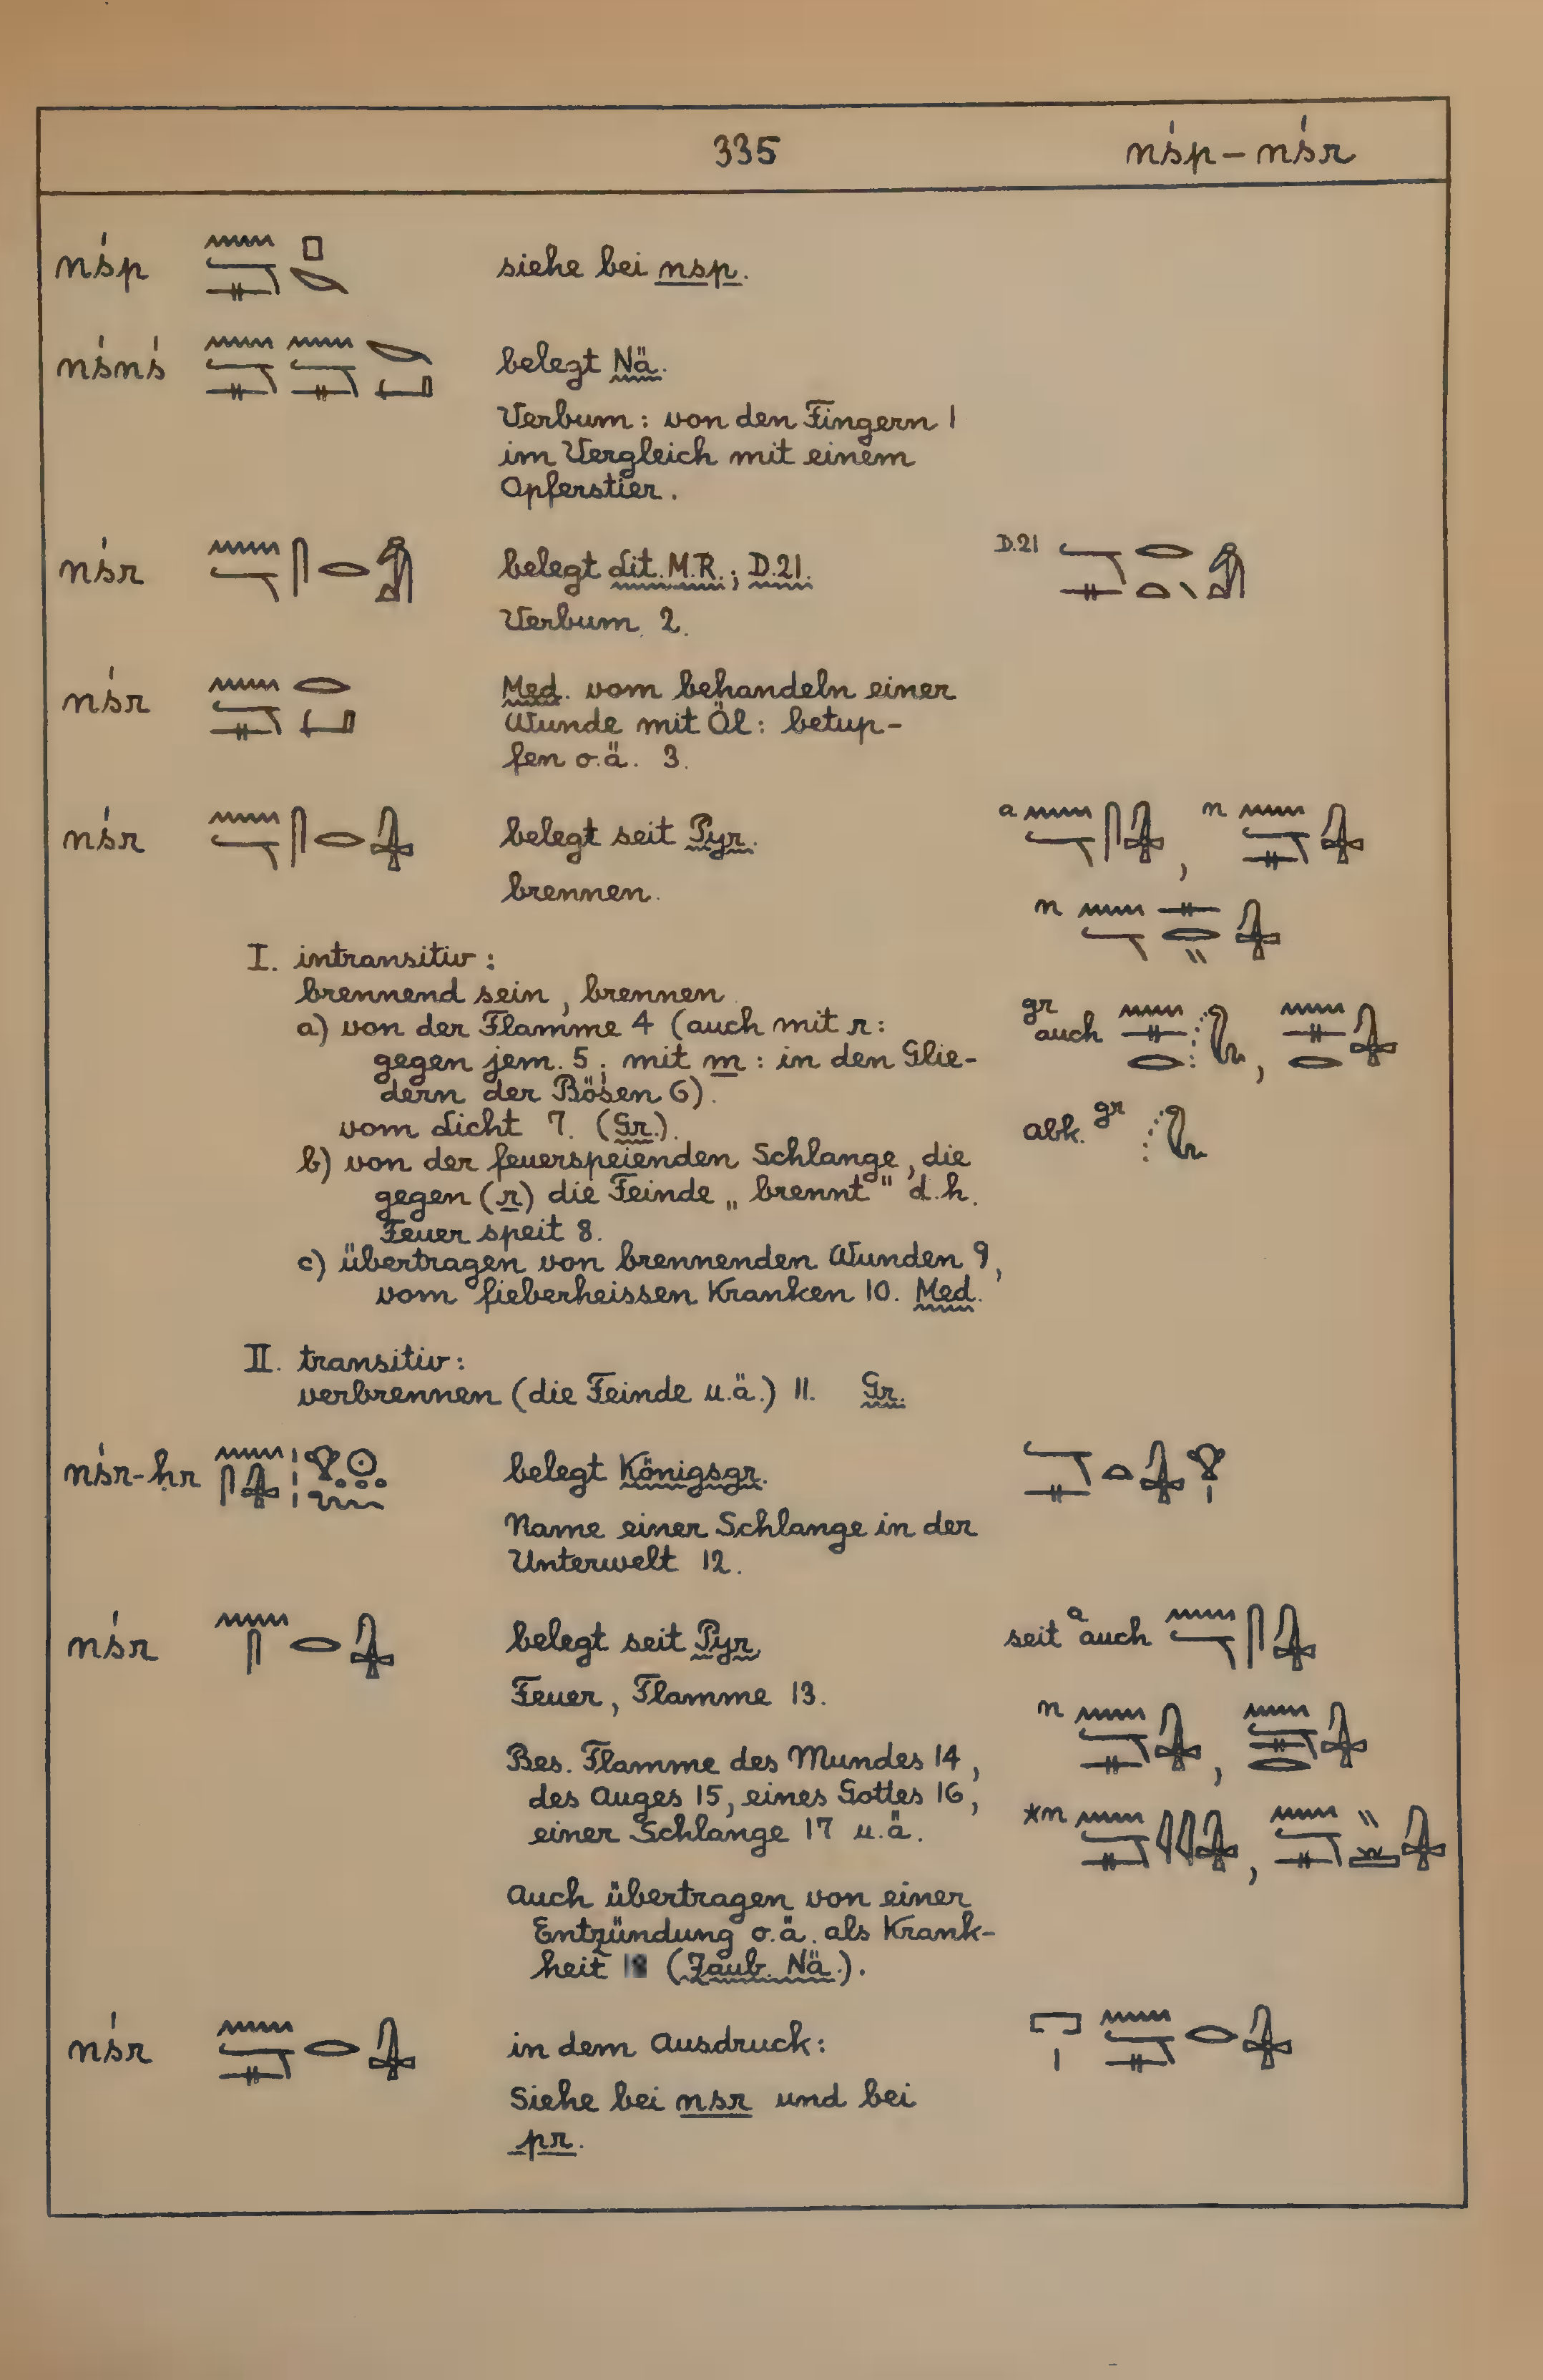 335 nśp – nśr
nśp siehe bei nsp.
nśnś belegt Nä.
Verbum: von den Fingern 1
im Vergleich mit einem
Opferstier.
nśr belegt Lit. M.R.; D.21. D.21
Verbum 2.
nśr Med. vom behandeln einer
Wunde mit Öl: betup-
fen o.ä. 3.
nśr belegt seit Pyr. a , n
brennen. n
I. intransitiv:
brennend sein, brennen
a) von der Flamme 4 (auch mit r:
gegen jem. 5; mit m: in den Glie-
dern der Bösen 6).
vom Licht 7. (Gr.).
gr auch ,
abk. gr
b) von der feuerspeienden Schlange, die
gegen (r) die Feinde „brennt" d.h.
Feuer speit 8.
c) übertragen von brennenden Wunden 9,
vom fieberheissen Kranken 10. Med.
II. transitiv:
verbrennen (die Feinde u.ä.) 11. Gr.
nśr-ḥr belegt Königsgr.
Name einer Schlange in der
Unterwelt 12.
nśr belegt seit Pyr. seit a auch
Feuer, Flamme 13.
n ,
Bes. Flamme des Mundes 14,
des Auges 15, eines Gottes 16,
einer Schlange 17 u.ä.
*n ,
Auch übertragen von einer
Entzündung o.ä. als Krank-
heit 18 (Zaub. Nä.).
nśr in dem Ausdruck:
Siehe bei nsr und bei
pr.